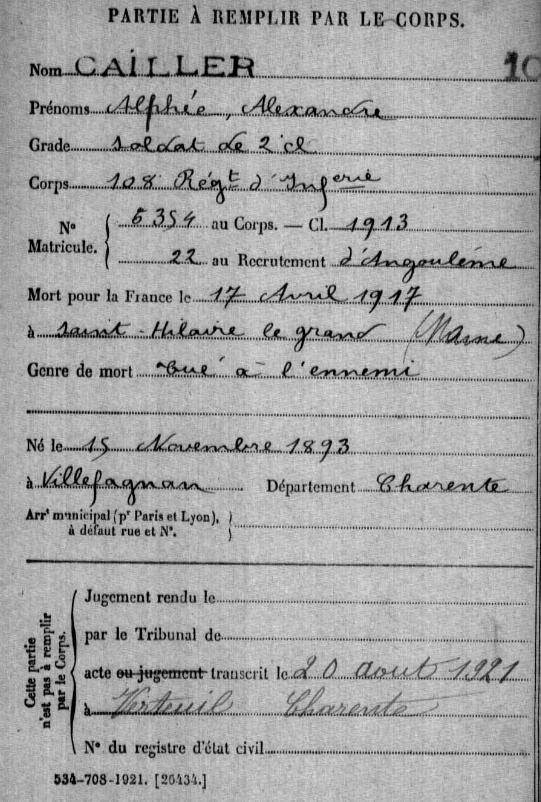 PARTIE À REMPLIR PAR LE CORPS.
Nom CAILLER 10
Prénoms Alphée, Alexandre
Grade soldat de 2e cl
Corps 108e Régt d'Inferie
No Matricule. 6354 au Corps. — Cl. 1913
22 au Recrutement d'Angoulême
Mort pour la France le 17 Avril 1917
à Saint-Hilaire le grand (Marne)
Genre de mort Tué à l'ennemi
Né le 15 Novembre 1893
à Villefagnan Département Charente
Arrt municipal (pr Paris et Lyon),
à défaut rue et No.
Cette partie
n'est pas à remplir
par le Corps.
Jugement rendu le
par le Tribunal de
acte ou jugement transcrit le 20 août 1921
à Verteuil Charente
No du registre d'état civil
534-708-1921. [26434.]